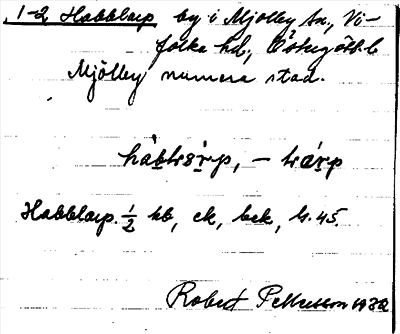 1-2 Habblarp by i Mjölby sn, Vi-
folka hd, Östergötl.
Mjölby numera stad.
Habblarp. 1/2 kb, ck, bck, h. 45.
Robert Pettersson 1932